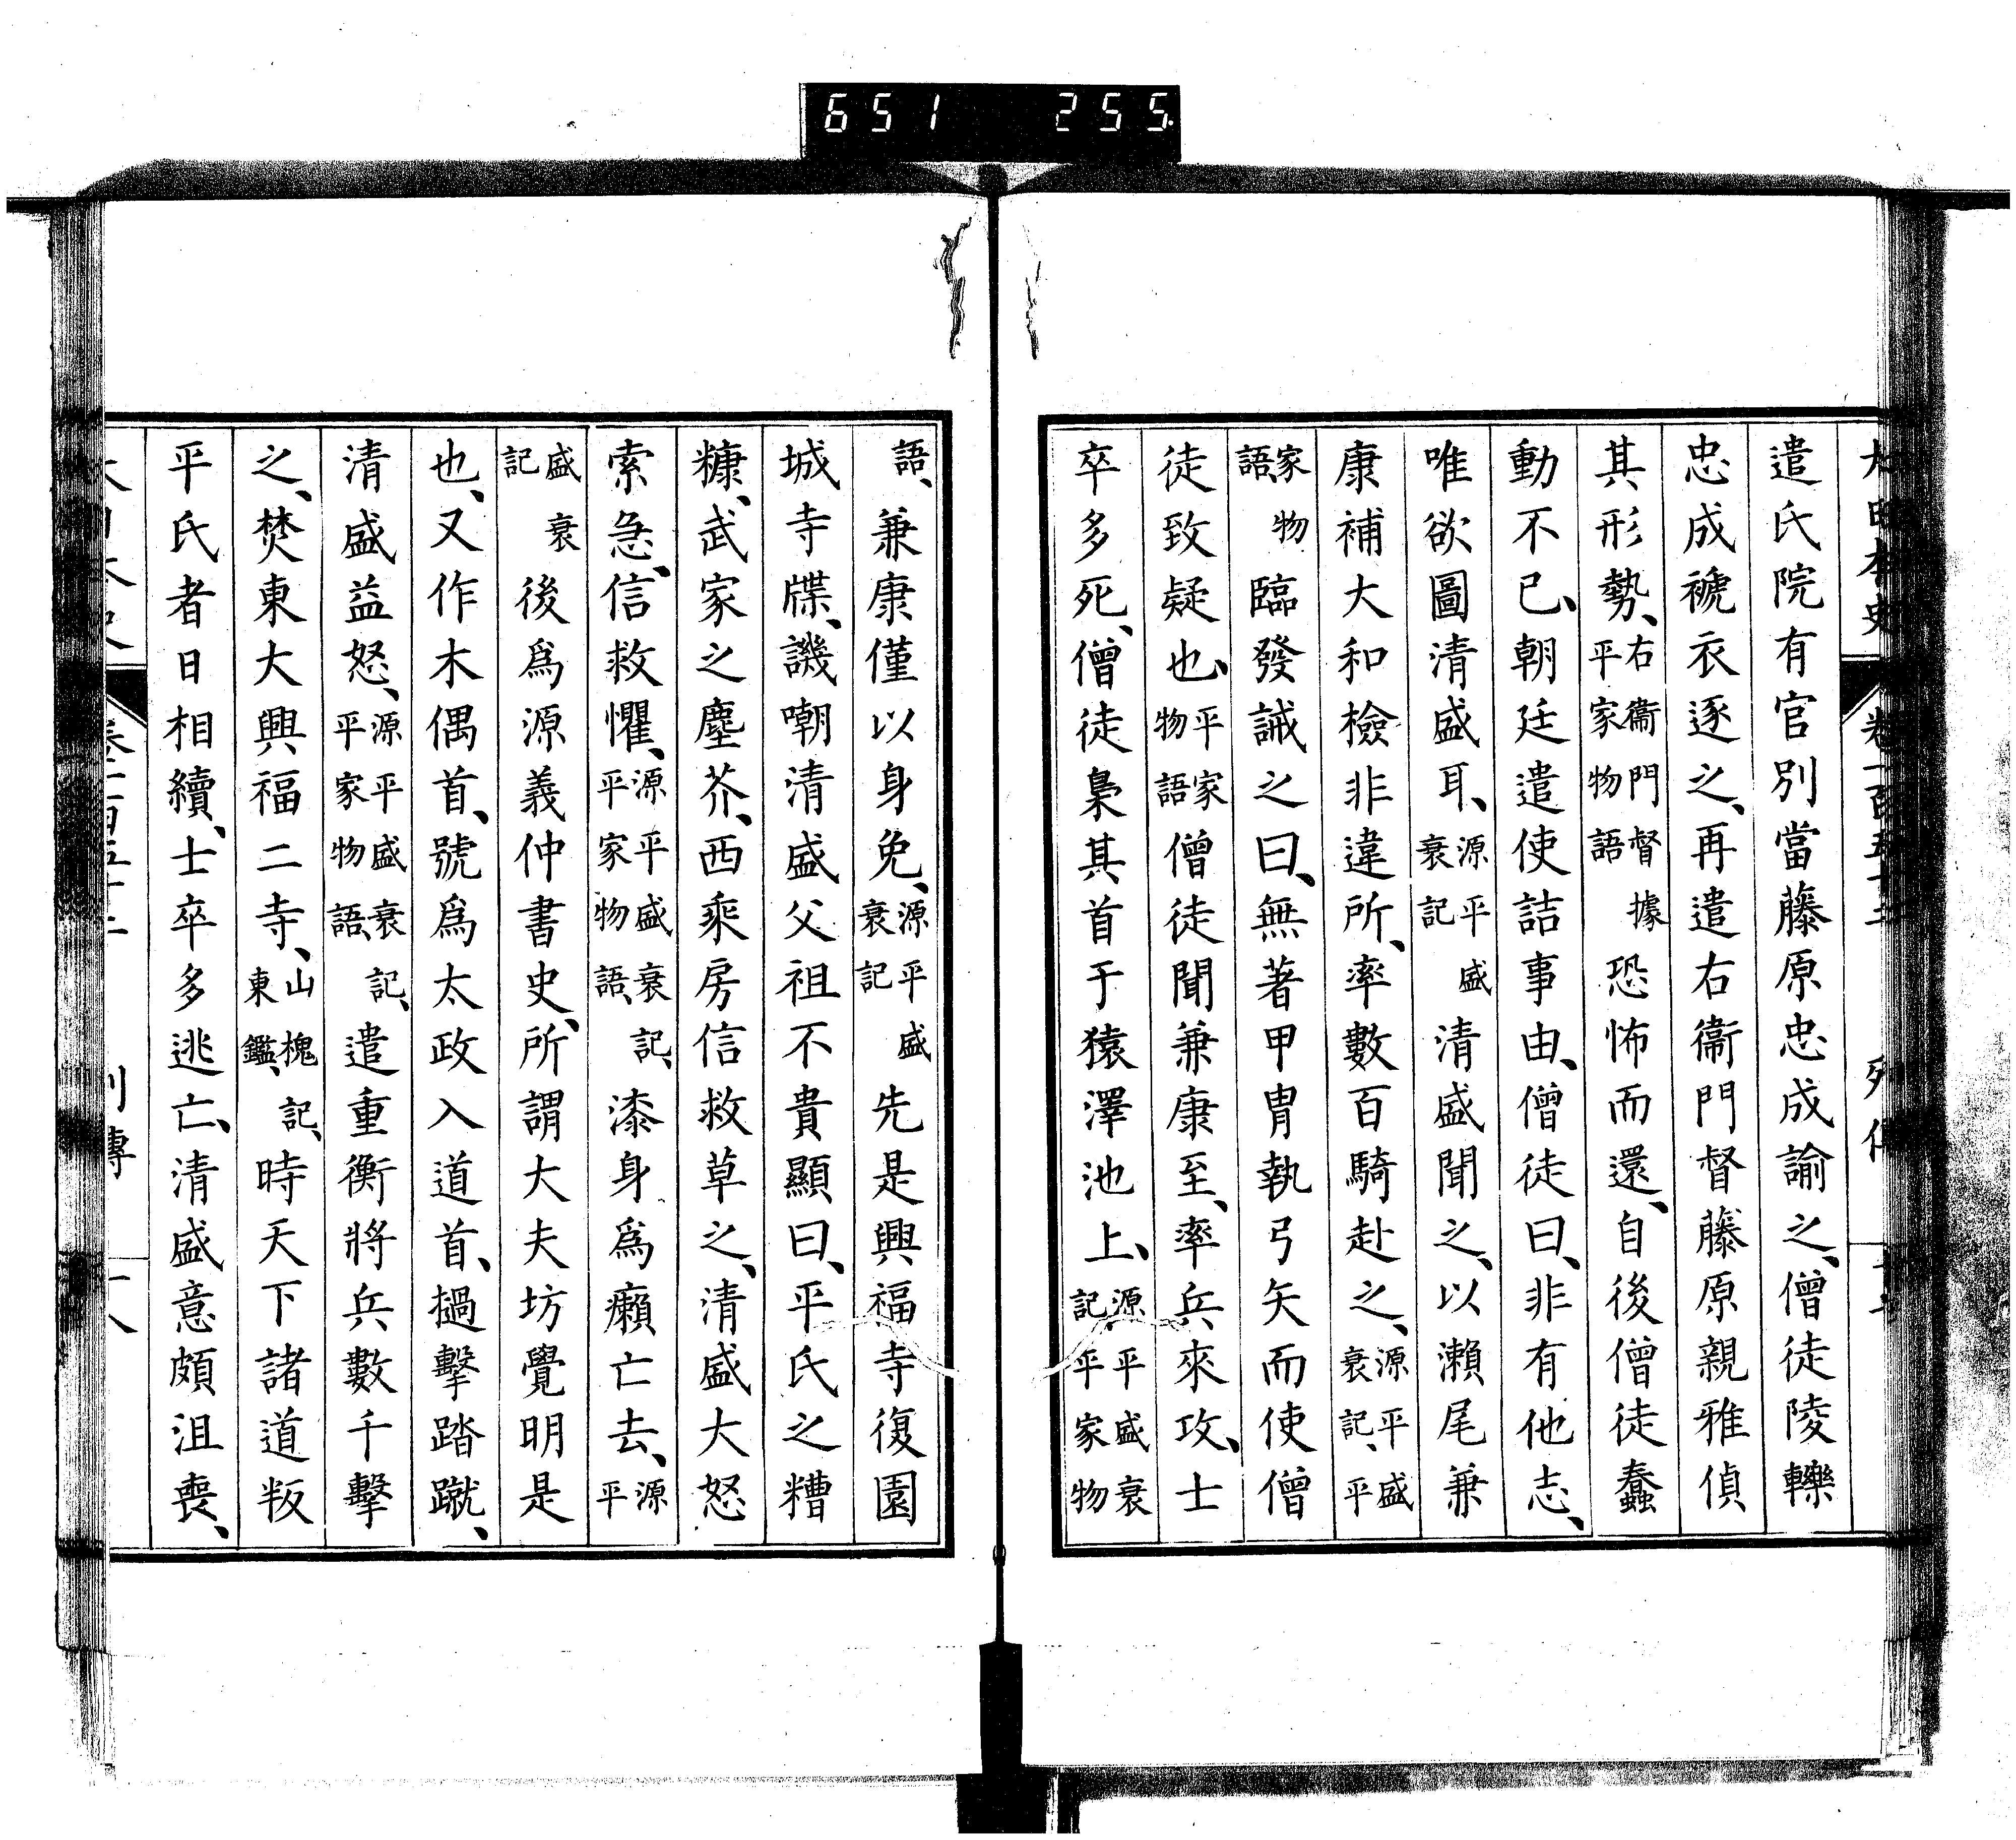 651 255
遣氏院有官別當藤原忠成諭之、僧徒陵轢
忠成褫衣逐之、再遣右衞門督藤原親雅偵
其形勢、右衞門督據平家物語恐怖而還、自後僧徒蠢
動不已、朝廷遣使詰事由、僧徒曰、非有他志、
唯欲圖清盛耳、源平盛衰記清盛聞之、以瀨尾兼
康補大和檢非違所、率數百騎赴之、源平盛衰記、平
家物語臨發誡之曰、無著甲冑執弓矢而使僧
徒致疑也、平家物語僧徒聞兼康至、率兵來攻、士
卒多死、僧徒梟其首于猿澤池上、源平盛衰記、平家物
語、兼康僅以身免、源平盛衰記先是興福寺復園
城寺牒、譏嘲清盛父祖不貴顯曰、平氏之糟
糠、武家之塵芥、西乘房信救草之、清盛大怒
索急、信救懼、源平盛衰記、平家物語漆身爲癩亡去、源平
盛衰記後爲源義仲書史、所謂大夫坊覺明是
也、又作木偶首、號爲太政入道首、撾擊踏蹴、
清盛益怒、源平盛衰記、平家物語、遣重衡將兵數千擊
之、焚東大興福二寺、山槐記、東鑑、時天下諸道叛
平氏者日相續、士卒多逃亡、清盛意頗沮喪、